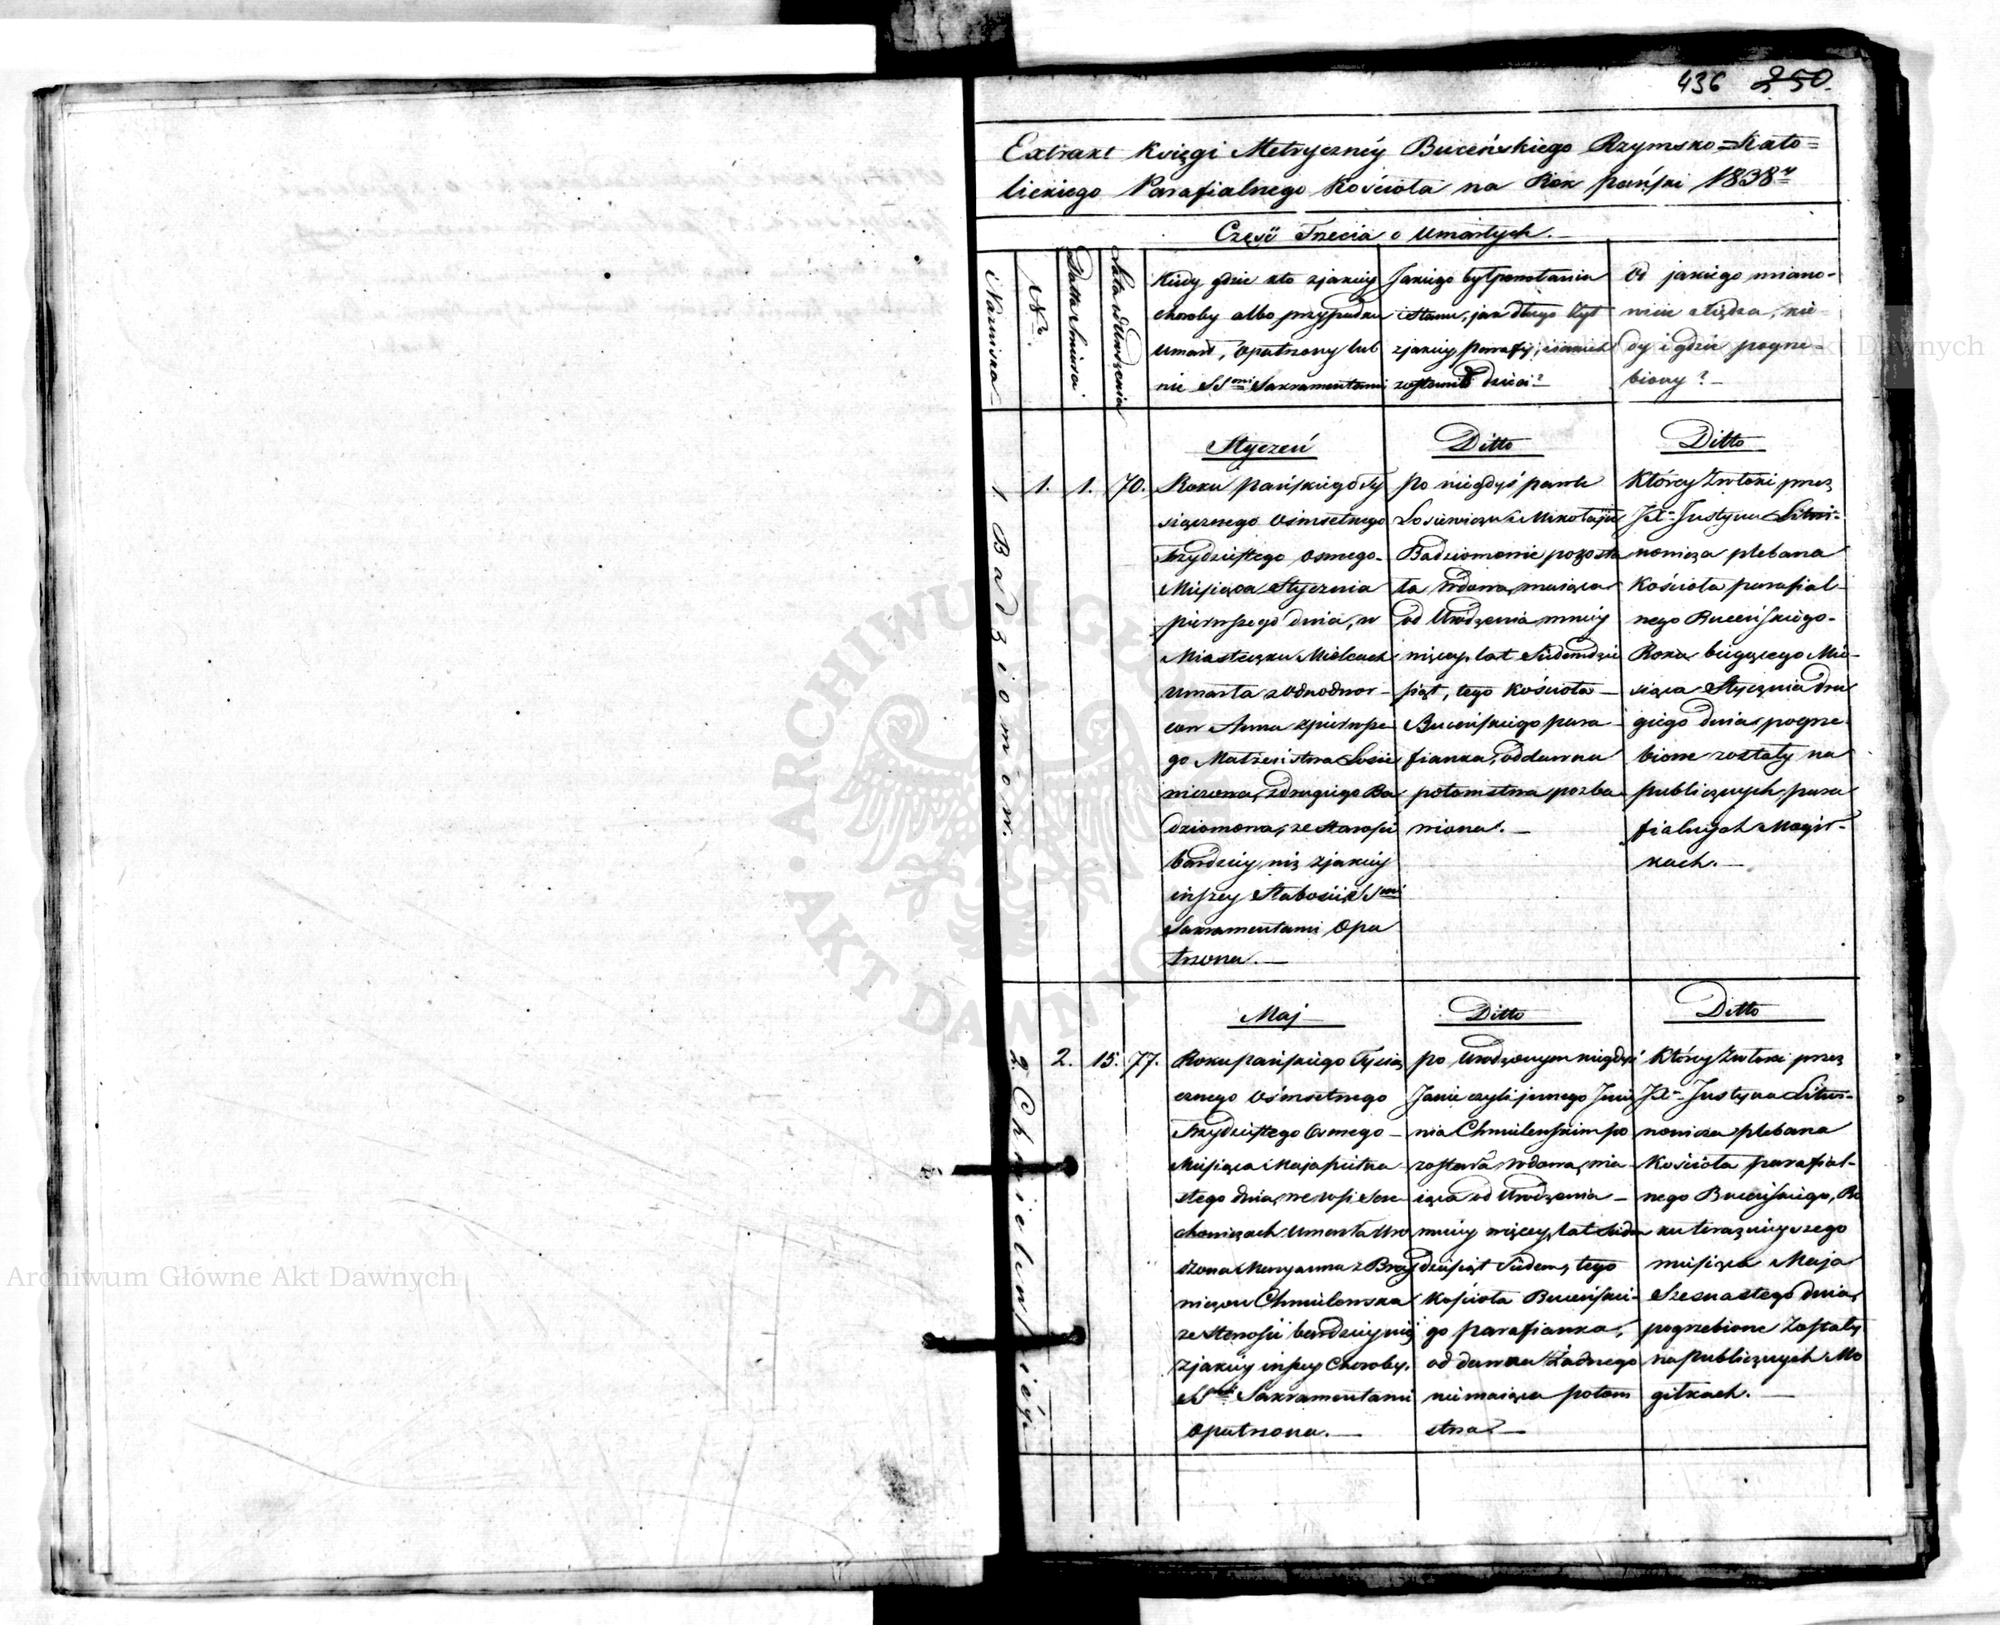 436 250.
Extrakt Księgi Metrycznéy Buceńskiego Rzymsko=Kato=
lickiego Parafialnego Kościoła na Rok pański 1838ᵞ
Część Trzecia o Umarłych.
Nazwiska
Nro
Datta Śmierci
Lata Urodzenia
Kiedy gdzie kto z jakiey
choroby albo przypadku
umarł, opatrzony lub
nie SSmi Sakramentami
Jakiego był powołania
i stanu, jak długo żył
z jakiey parafij, i jakich
zostawił dzieci?
Od jakiego miano-
wicie Xiędza, kie-
dy i gdzie pogrze-
biony?
1 Badziomow.
1.
1.
70.
Styczeń
Roku pańskiego ty
siącznego ośmsetnego
trzydziestego osmego
Miesiąca Stycznia
pierwszego dnia, w
Miasteczku Mielcach
umarła z Odnodwor-
cow Anna z pierwsze
go Małżeństwa Łosie
wiczowa, z drugiego Ba
dziomowa, ze starości
bardziey niż z jakiey
inszey słabości, SSmi
Sakramentami opa
trzona.
Ditto
po niegdyś pawle
Łosiewiczu i Mikołaju
Badziomowie pozosta
ła Wdowa, maiąca
od Urodzenia mniey
więcey lat Siedmdzie
siąt, tego Kościoła
Buceńskiego para
fianka, oddawna
potomstwa pozba
wiona.
Ditto
Którey Zwłoki przez
JX Justyna Litwi-
nowicza plebana
Kościoła parafial-
nego Buceńskiego
Roku bieżącego Mie-
siąca Stycznia dru
giego dnia, pogrze-
bione zostały na
publicznych para
fialnych Mogił-
kach.
2. Chmielewskiéy
2.
15.
77.
Maj
Roku pańskiego Tysią
cznego Ośmsetnego
Trzydziestego Osmego
Miesiąca Maja pietna
stego dnia, we wsi
umarła Uro
dzona Maryanna z
Chmielewska
ze starości bardziey niż
z jakiey inszey Choroby,
SSmi Sakramentami
opatrzona.
Ditto
po Urodzonym niegdyś
Janie czyli
Chmielewskim po
została Wdowa, ma
iąca od Urodzenia
mniey więcey lat Siedm
dziesiąt siedem, tego
Kościoła Buceńskie-
go parafianka,
od dawna Żadnego
niemaiąca potom
stwa.
Ditto
Którey Zwłoki przez
JX Justyna Litwi-
nowicza plebana
Kościoła parafial-
nego Buceńskiego, Ro
ku teraznieyszego
miesiąca Maja
Szesnastego dnia,
pogrzebione Zostały
na publicznych Mo
giłkach.
ARCHIWUM GŁÓWNE
AKT DAWNYCH
Archiwum Główne Akt Dawnych
Akt Dawnych